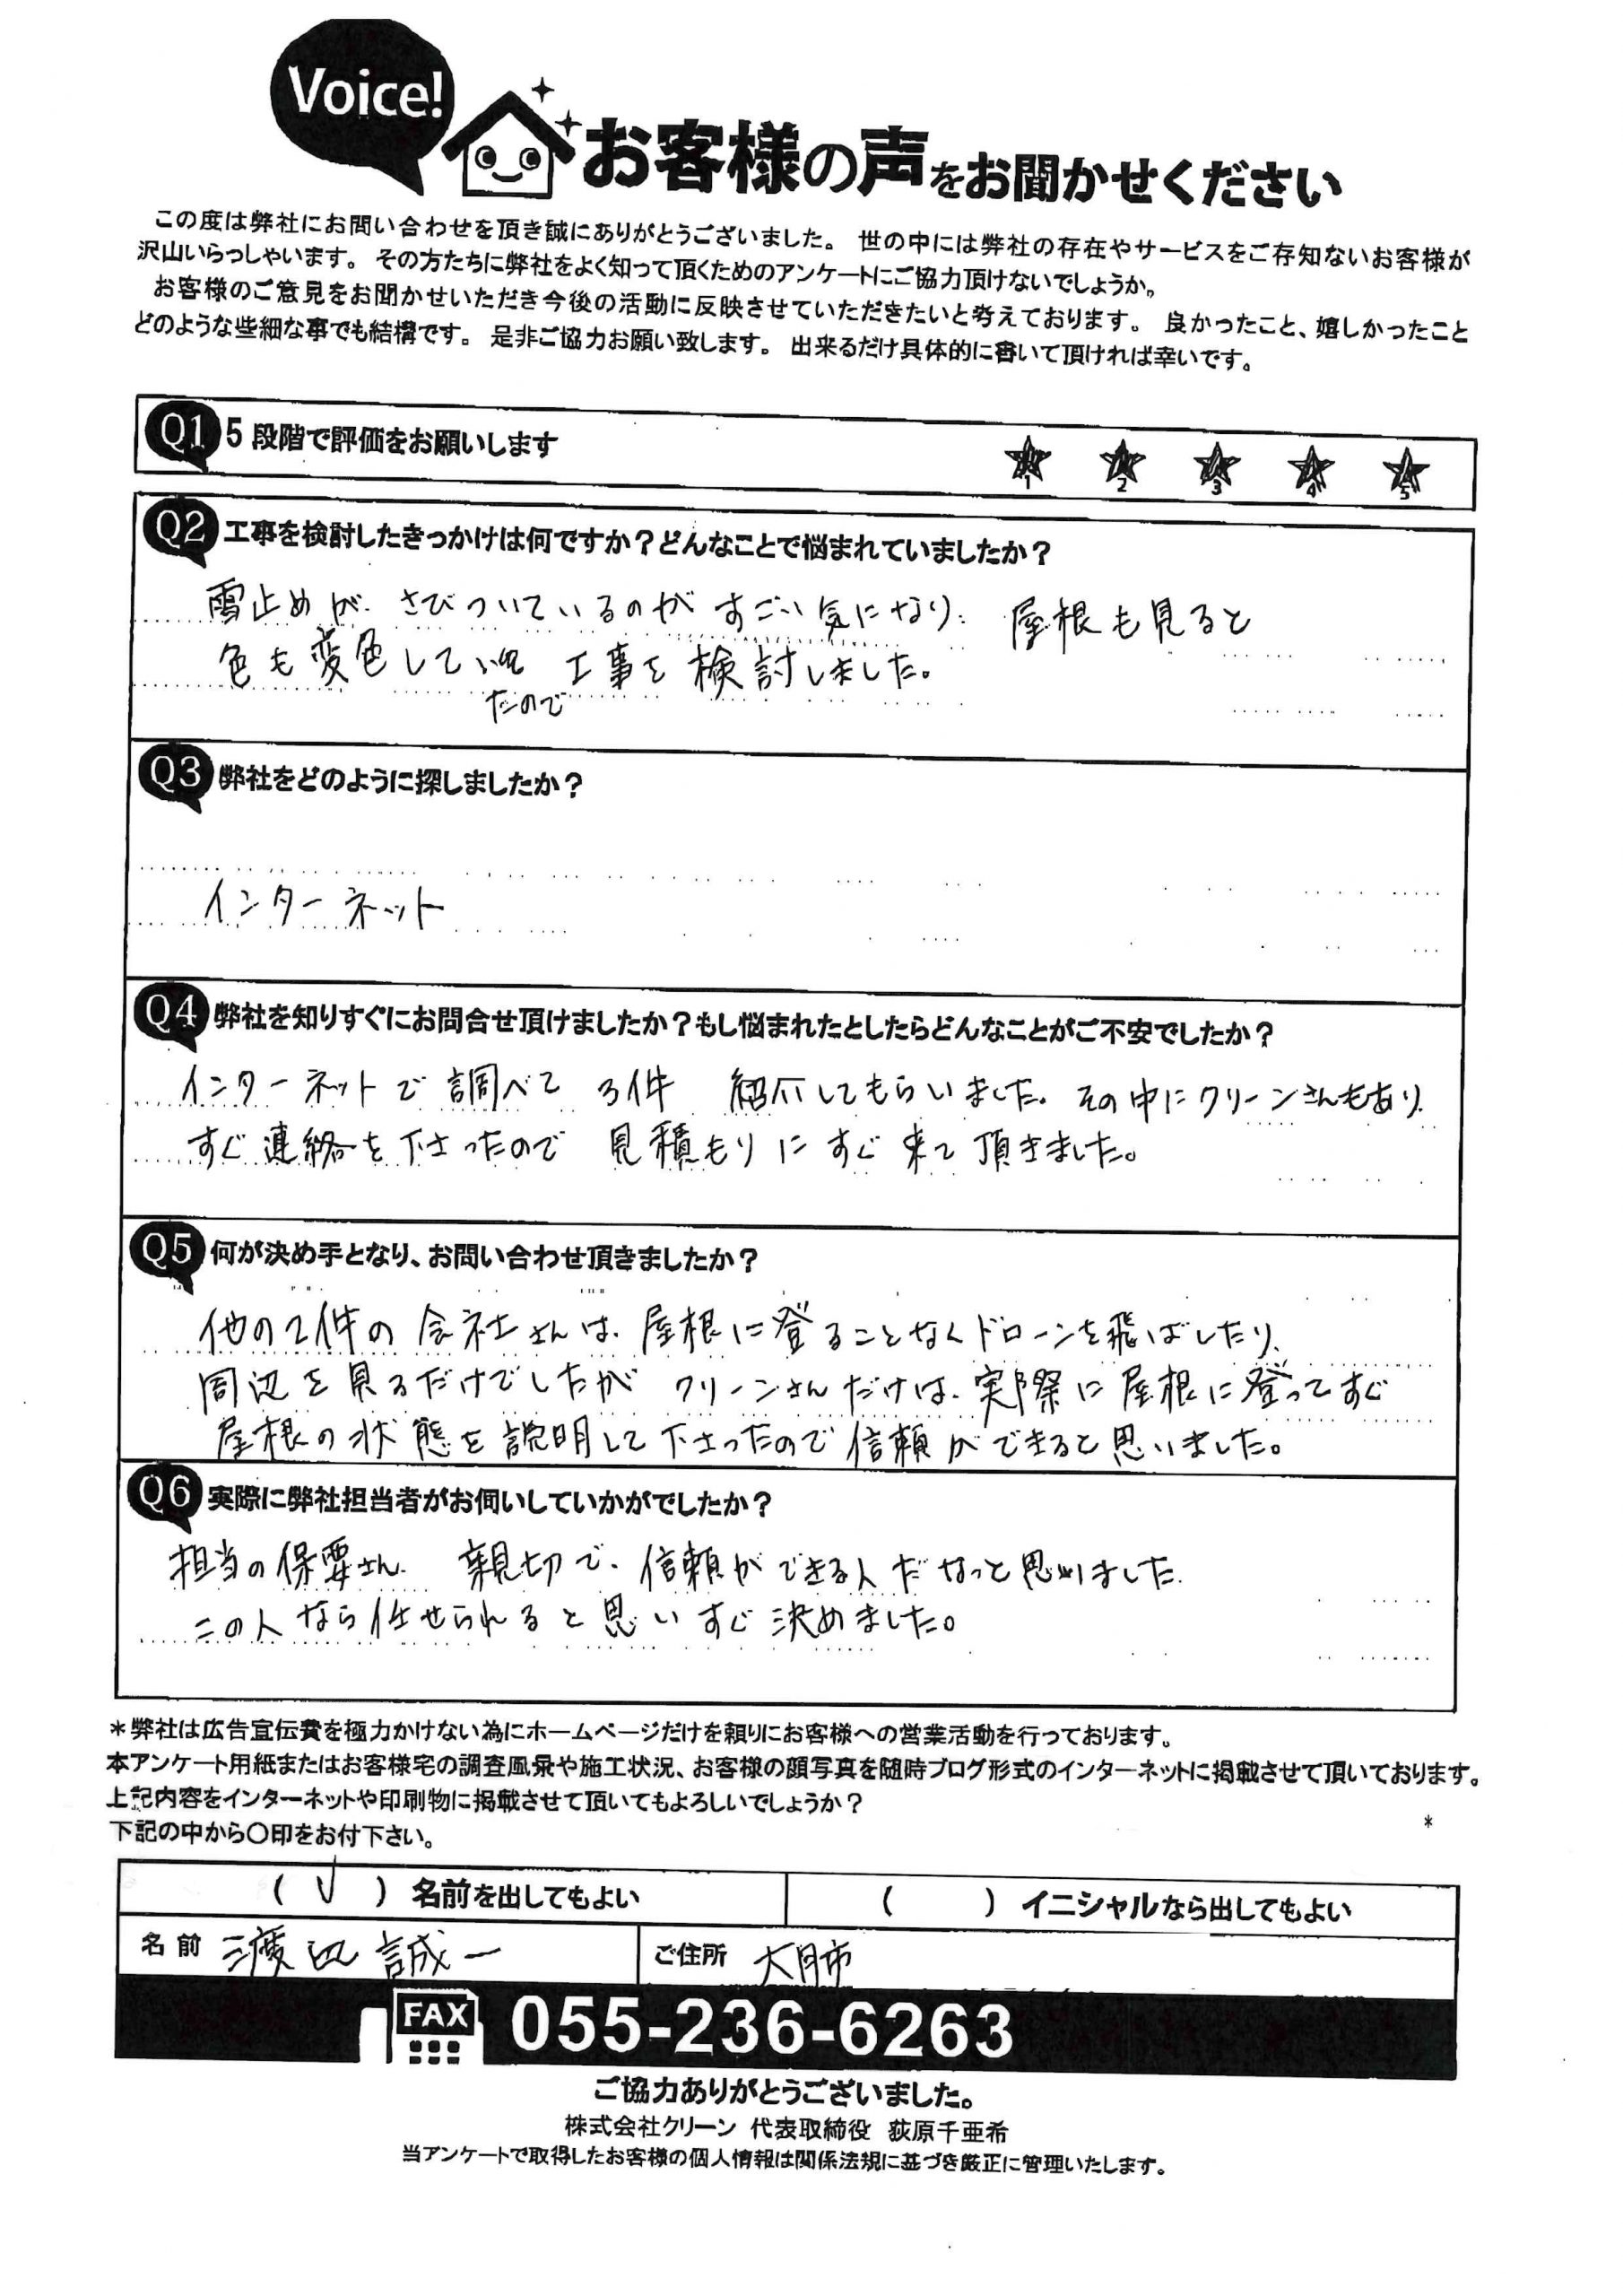 Voice!
お客様の声をお聞かせください
この度は弊社にお問い合わせを頂き誠にありがとうございました。 世の中には弊社の存在やサービスをご存知ないお客様が
沢山いらっしゃいます。 その方たちに弊社をよく知って頂くためのアンケートにご協力頂けないでしょうか。
お客様のご意見をお聞かせいただき今後の活動に反映させていただきたいと考えております。 良かったこと、嬉しかったこと
どのような些細な事でも結構です。 是非ご協力お願い致します。 出来るだけ具体的に書いて頂ければ幸いです。
Q1 5段階で評価をお願いします
1 2 3 4 5
Q2 工事を検討したきっかけは何ですか？どんなことで悩まれていましたか？
雪止めが、さびついているのがすごい気になり、屋根も見ると
色も変色してい 工事を検討しました。
たので
Q3 弊社をどのように探しましたか？
インターネット
Q4 弊社を知りすぐにお問合せ頂けましたか？もし悩まれたとしたらどんなことがご不安でしたか？
インターネットで調べて 3件 紹介してもらいました。その中にクリーンさんもあり、
すぐ連絡を下さったので 見積もりにすぐ来て頂きました。
Q5 何が決め手となり、お問い合わせ頂きましたか？
他の2件の会社さんは、屋根に登ることなくドローンを飛ばしたり、
周辺を見るだけでしたが クリーンさんだけは、実際に屋根に登ってすぐ
屋根の状態を説明して下さったので信頼ができると思いました。
Q6 実際に弊社担当者がお伺いしていかがでしたか？
担当の保要さん、親切で、信頼ができる人だなっと思いました。
この人なら任せられると思いすぐ決めました。
＊弊社は広告宣伝費を極力かけない為にホームページだけを頼りにお客様への営業活動を行っております。
本アンケート用紙またはお客様宅の調査風景や施工状況、お客様の顔写真を随時ブログ形式のインターネットに掲載させて頂いております。
上記内容をインターネットや印刷物に掲載させて頂いてもよろしいでしょうか？
＊
下記の中から〇印をお付下さい。
（ ✓ ） 名前を出してもよい （ ） イニシャルなら出してもよい
名前 渡辺 誠一 ご住所 大月市
FAX 055-236-6263
ご協力ありがとうございました。
株式会社クリーン 代表取締役 荻原千亜希
当アンケートで取得したお客様の個人情報は関係法規に基づき厳正に管理いたします。